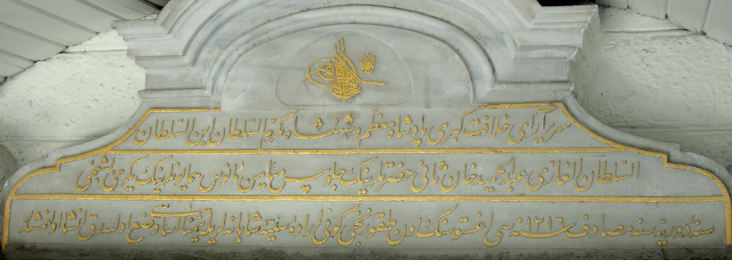 سریر آرای خلافت کبری پادشاه معظم و شهنشاه مکرم السلطان ابن السلطان
السلطان الغازی عبد الحمید خان ثانی حضرتلرینک جلوس میامن مأنوس همایونلرینک یکرمی بشنجی
سنه دوریه سنه مصادف ١٣١٦ سنه سی اغستوسنک اون طقوزنجی کونی اراده سنیه شاهانه لریله وضع اساس اولنه رق انشا اولنمشدر